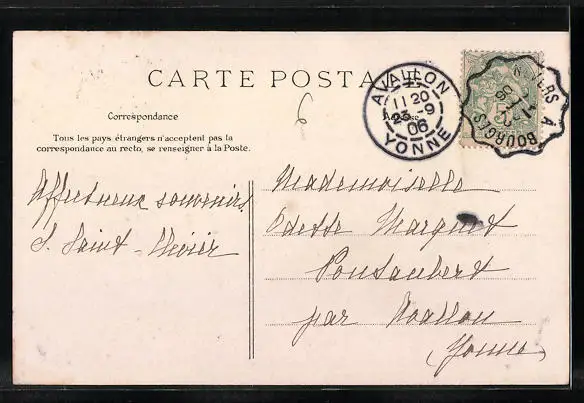 CARTE POSTALE
AVALLON
11 20
2-9
06
YONNE
RS A BOURGES
5
6
Correspondance
Adresse
Tous les pays étrangers n'acceptent pas la
correspondance au recto, se renseigner à la Poste.
Affectueux souvenirs
S. Saint-
Mademoiselle
Odette Marquet
Pontaubert
par Avallon
(Yonne)